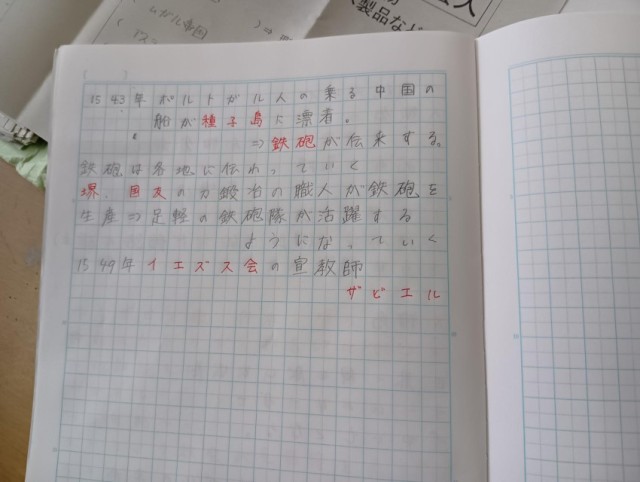 ムガル帝国
製品など
人
1543年 ポルトガル人の乗る中国の
船が種子島に漂着。
⇒鉄砲が伝来する。
鉄砲は各地に伝わっていく
堺、国友の刀鍛冶の職人が鉄砲を
生産⇒足軽の鉄砲隊が活躍する
ようになっていく
1549年イエズス会の宣教師
ザビエル